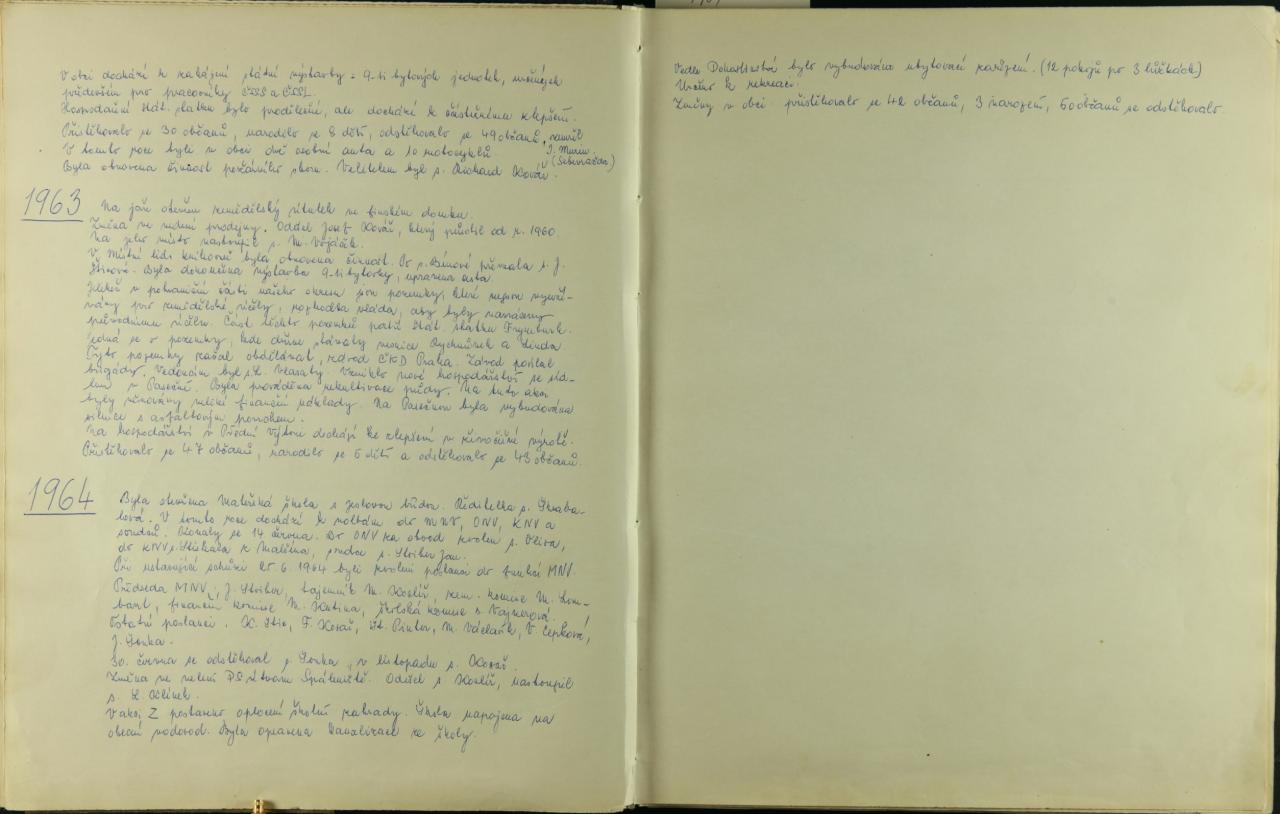 V obci dochází k zahájení státní výstavby = 9-ti bytových jednotek, určených
především pro pracovníky ČSSS a ČSSL.
Hospodaření stát. statku bylo prodělečné, ale dochází k částečnému zlepšení.
Přistěhovalo se 30 občanů, narodilo se 8 dětí, odstěhovalo se 49 občanů, zemřil
J. Murin.
(Sebevražda)
V tomto roce byli v obci dvě osobní auta a 10 motocyklů.
Byla obnovena činnost požárního sboru. Velitelem byl s. Richard Kovář.
1963
Na jaře otevřen zemědělský útulek ve finském domku.
Změna ve vedení prodejny. Odešel Josef Kovář, který působil od r. 1960.
Na jeho místo nastoupil s. M. Vojáček.
V Místní lids knihovně byla obnovena činnost. Po s. Bínové převzala s. J.
Byla dokončena výstavba 9-ti bytovky, upravena cesta.
Jelikož v pohraniční části našeho okresu jsou pozemky, které nejsou využí-
vány pro zemědělské účely, rozhodla vláda, aby byly navráceny
původnímu účelu. Část těchto pozemků patří Stát. statku Frymburk.
Jedná se o pozemky, kde dříve stávaly vesnice Rychnůvek a
Tyto pozemky začal obdělávat, závod ČKD Praha. Závod posílal
brigády. Vedoucím byl s. Vlasatý. Vzniklo nové hospodářství se síd-
lem v Pasečné. Byla prováděna rekultivace půdy. Na tuto akci
byly věnovány veliké finanční náklady. Na Pasečnou byla vybudována
silnice s asfaltovým povrchem.
Na hospodářství v Přední Výtoni dochází ke zlepšení v živočišné výrobě.
Přistěhovalo se 47 občanů, narodilo se 5 dětí a odstěhovalo se 43 občanů.
1964
Byla otevřena Mateřská škola s jeslovou třídou. Ředitelka s. Škraba-
lová. V tomto roce dochází k volbám do MNV, ONV, KNV a
soudců. Konaly se 14 června. Do ONV za obvod zvolen s. Oliva,
do KNV s. Stiehala z Malšína, soudce s. Striber Jan.
Při ustavující schůzi 25. 6. 1964 byli zvoleni poslanci do funkcí MNV.
Předseda MNV, J. Striber, tajemník M. Kozlíř, zem. komise M. Lom-
bart, finanční komise M. Kutina, školská komise s. Vajnerová.
Ostatní poslanci. K. Stix, F. Kovář, St. Pintér, M. Václavík, V. Čepková,
J. Gonka.
30. června se odstěhoval s. Gonka, v listopadu s. Kovář.
Změna ve velení PS útvaru Spáleniště. Odešel s. Kozlíř, nastoupil
s. L. Bělínek.
V akci Z postaveno oplocení školní zahrady. Škola napojena na
obecní vodovod. Byla opravena kanalizace ze školy.
Vedle Pohostinství bylo vybudováno ubytovací zařízení. (12 pokojů po 3 lůžkách)
Určeno k rekreaci.
Změny v obci přistěhovalo se 42 občanů, 3 narození, 60 občanů se odstěhovalo.